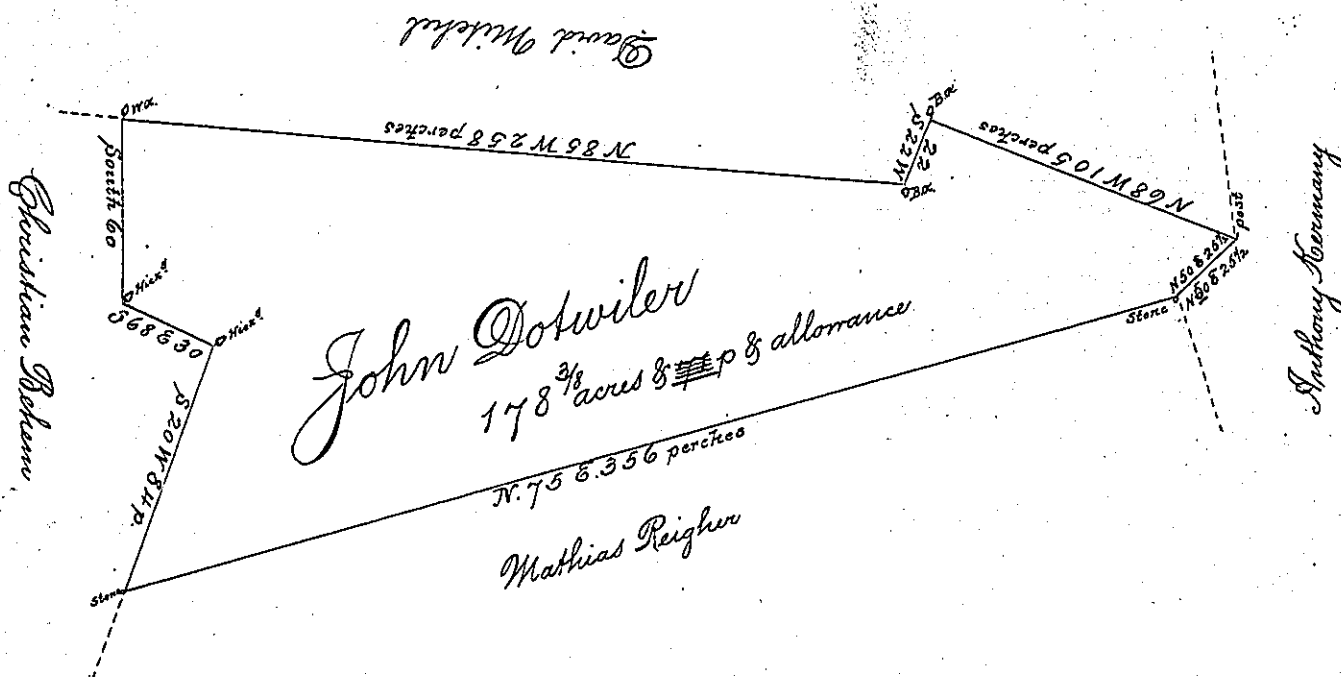 David Mitchel
wo.
N 85 W 258 perches
Bo.
S 22 W
22
Bo.
N 68 W 105 perches
post
N 50 E 25 1/2
N 50 E 25 1/2
Stone
Anthony Kermany
South 60
Christian Behem
Hick.y
S 68 E 30
Hick.y
S 20 W 84 p.
Stone
John Dotwiler
178 3/8 acres & p & allowrance
N. 75 E. 356 perches
Mathias Reigher